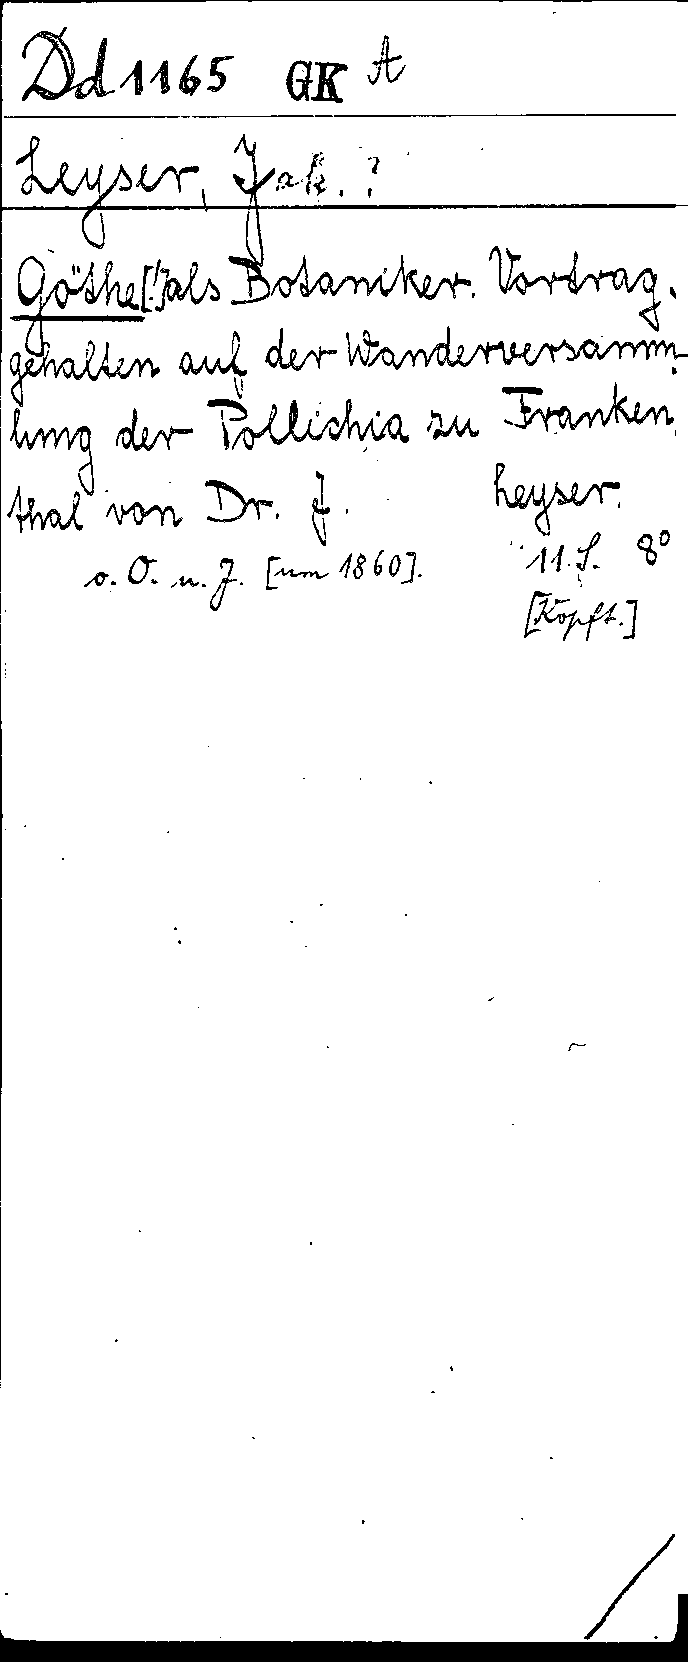 Dd 1165 GK A
Leyser, Jak. ?
Göthe [!] als Botaniker. Vortrag,
gehalten auf der Wanderversamm-
lung der Pollichia zu Franken
thal von Dr. J. Leyser.
o. O. u. J. [um 1860]. 11 S. 8°
[Kopft.]